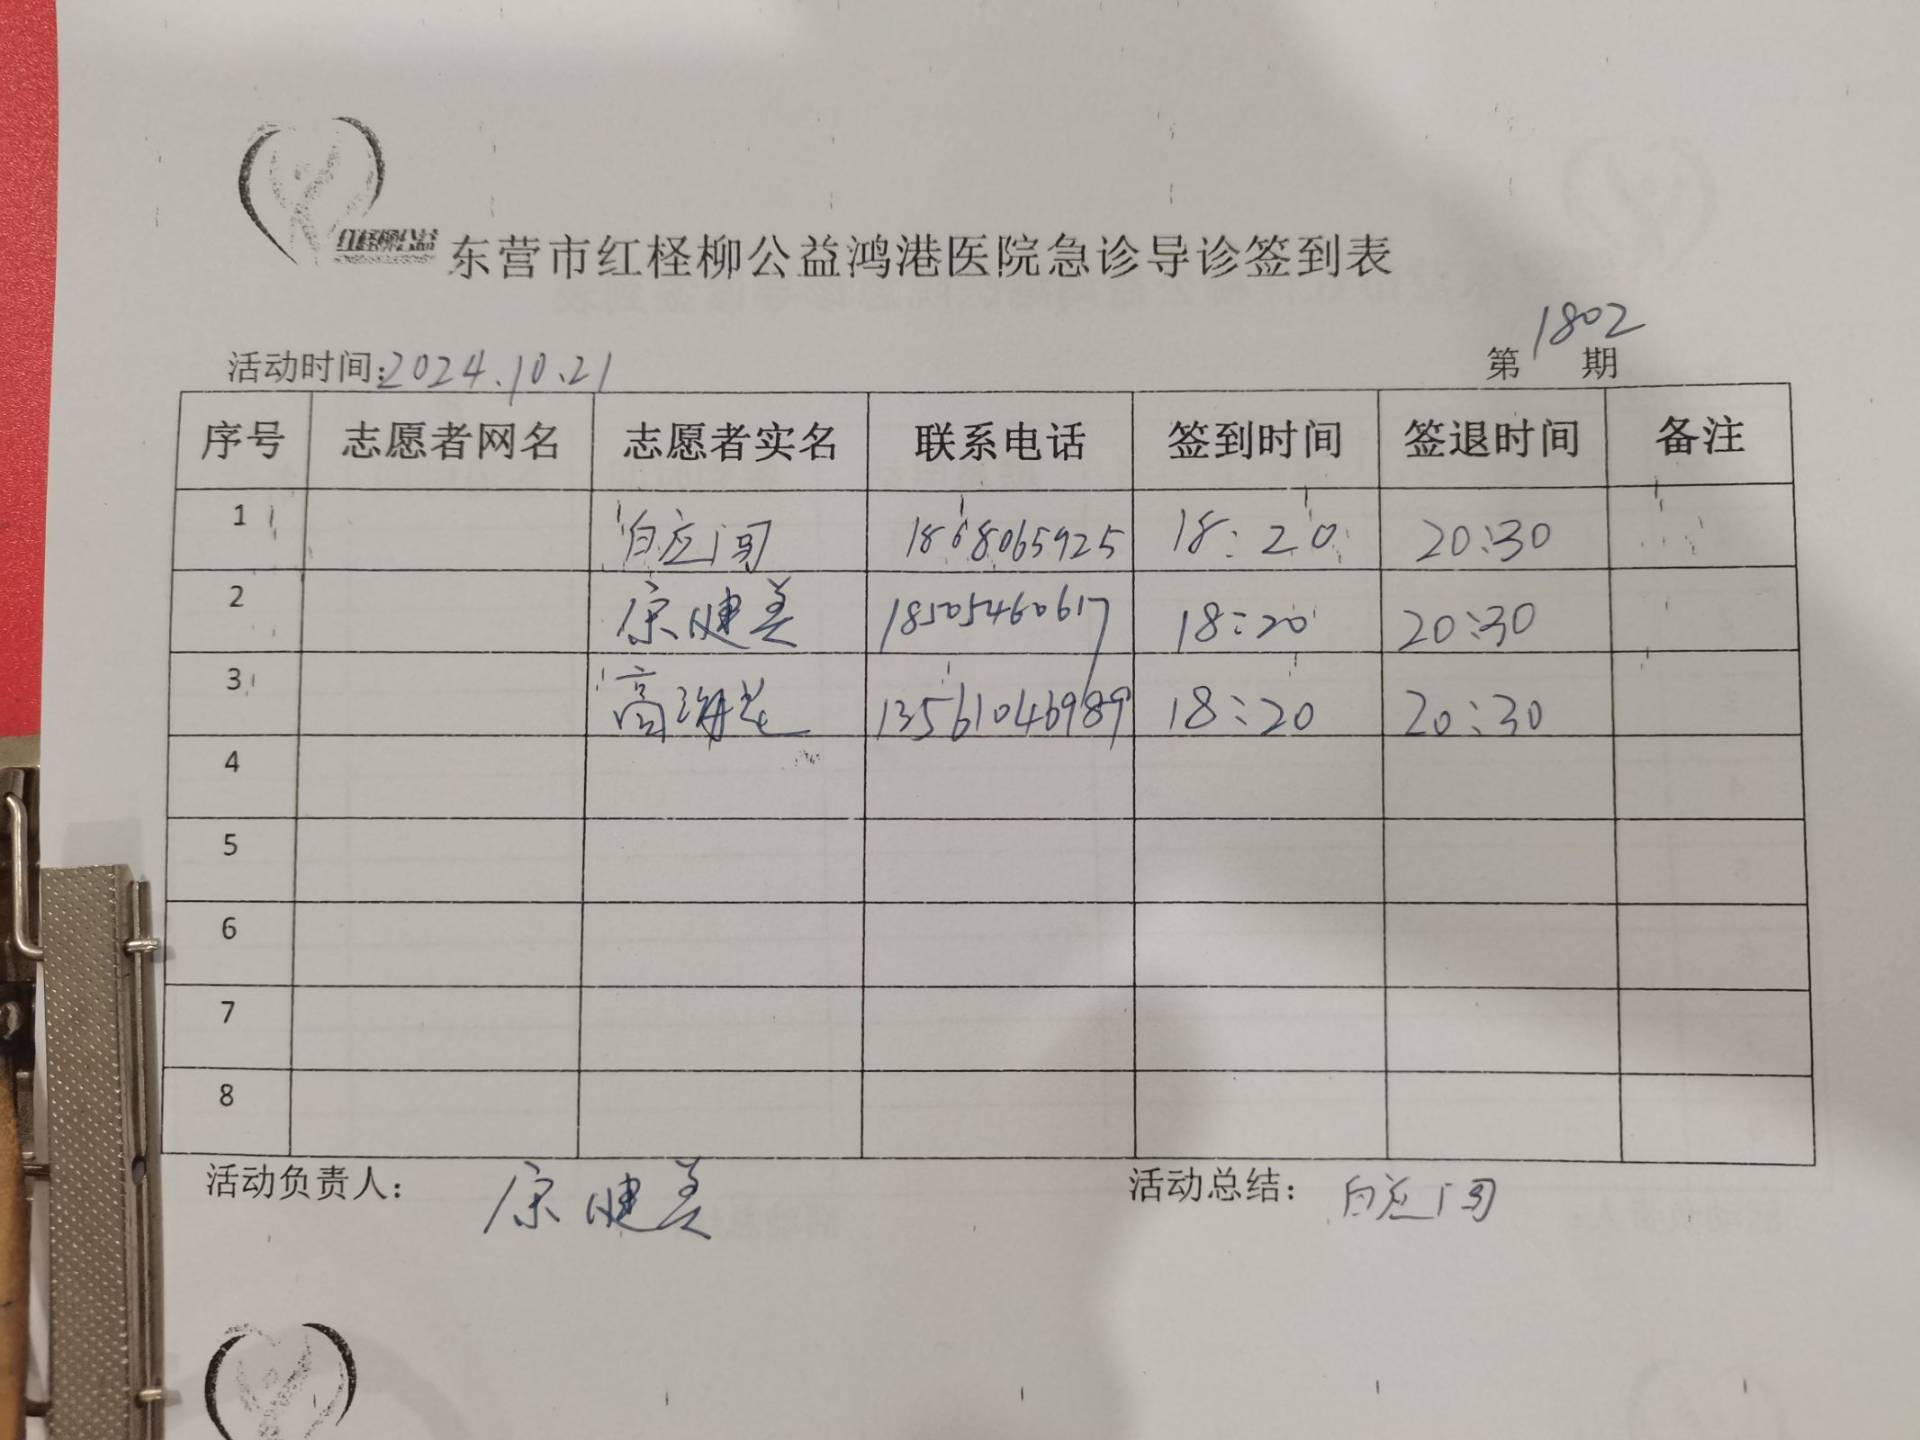 红柽柳公益
东营市红柽柳公益鸿港医院急诊导诊签到表
活动时间:2024.10.21 第1802期
序号 志愿者网名 志愿者实名 联系电话 签到时间 签退时间 备注
1 白应 1868065925 18:20 20:30
2 康健美 18505460617 18:20 20:30
3 高海 13561046989 18:20 20:30
4
5
6
7
8
活动负责人: 康健美 活动总结: 白应